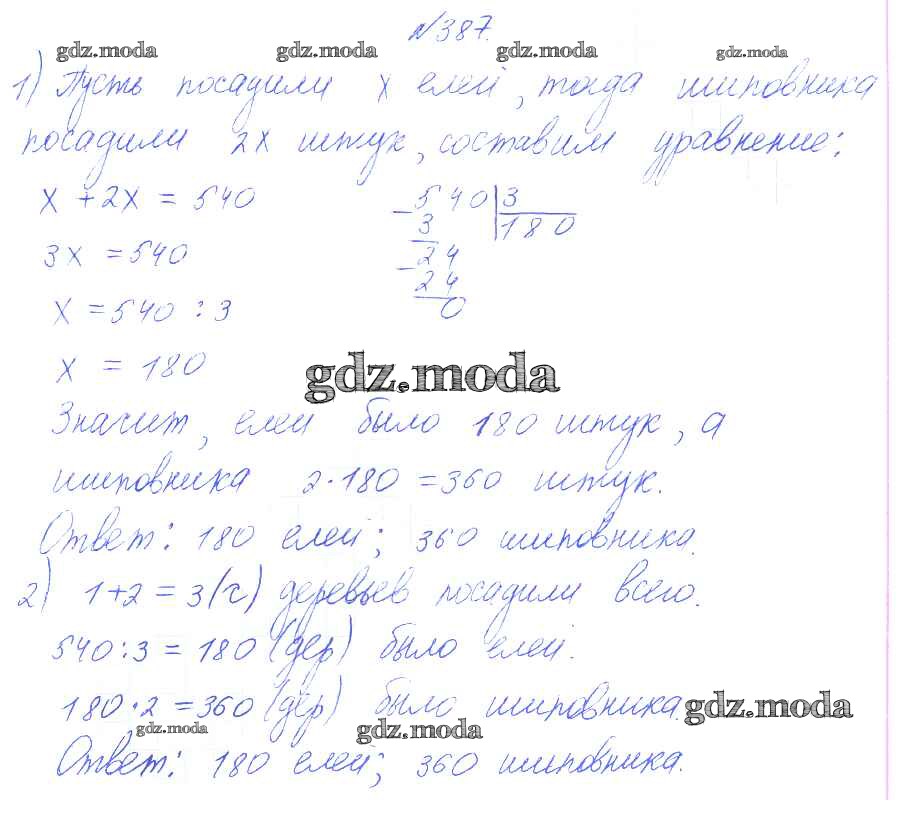 №387.
gdz.moda gdz.moda gdz.moda gdz.moda
1) Пусть посадили x елей, тогда шиповника
посадили 2x штук, составим уравнение:
x + 2x = 540
540 | 3
3 180
3x = 540
24
24
x = 540 : 3
0
x = 180
gdz.moda
Значит, елей было 180 штук, а
шиповника 2·180 = 360 штук.
Ответ: 180 елей; 360 шиповника.
2) 1+2 = 3(ч) деревьев посадили всего.
540:3 = 180 (дер) было елей.
180·2 = 360 (дер) было шиповника.
gdz.moda gdz.moda gdz.moda
Ответ: 180 елей; 360 шиповника.